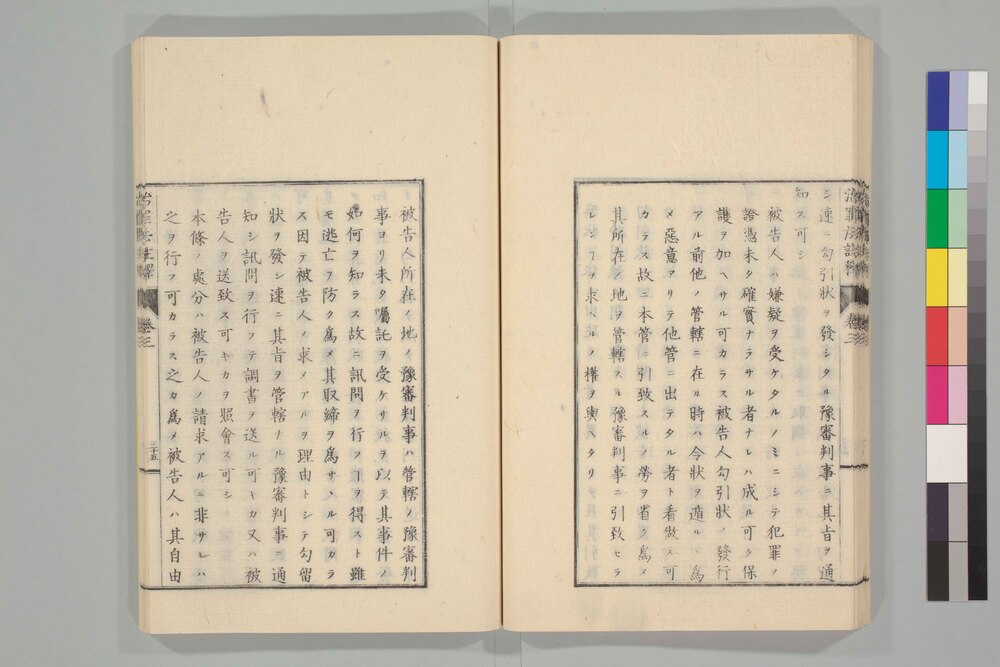 シ速ニ勾引狀ヲ發シタル豫審判事ニ其旨ヲ通
知ス可シ
被告人ハ嫌疑ヲ受ケタルノミニシテ犯罪ノ
證憑未タ確實ナラサル者ナレハ成ル可ク保
護ヲ加ヘサル可カラス被告人勾引狀ノ發行
アル前他ノ管轄ニ在ル時ハ令狀ヲ遁ルヽ爲
メ惡意アリテ他管ニ出テタル者ト看做ス可
カラス故ニ本管ニ引致スルノ勞ヲ省キ爲メ
其所在ノ地ヲ管轄スル豫審判事ニ引致セラ
レンヿヲ求ムルノ權ヲ與ヘタリ
被告人所在ノ地ノ豫審判事ハ管轄ノ豫審判
事ヨリ未タ囑託ヲ受ケサルヲ以テ其事件ノ
如何ヲ知ラス故ニ訊問ヲ行フヿヲ得スト雖
モ逃亡ヲ防ク爲メ其取締ヲ爲サヽル可カラ
ス因テ被告人ノ求メアルヲ理由トシテ勾留
狀ヲ發シ速ニ其旨ヲ管轄ナル豫審判事ニ通
知シ訊問ヲ行フテ調書ヲ送ル可キカ又ハ被
告人ヲ送致ス可キカヲ照會ス可シ
本條ノ處分ハ被告人ノ請求アルニ非サレハ
之ヲ行フ可カラス之カ爲メ被告人ハ其自由
治罪法註釋
卷三
三十五